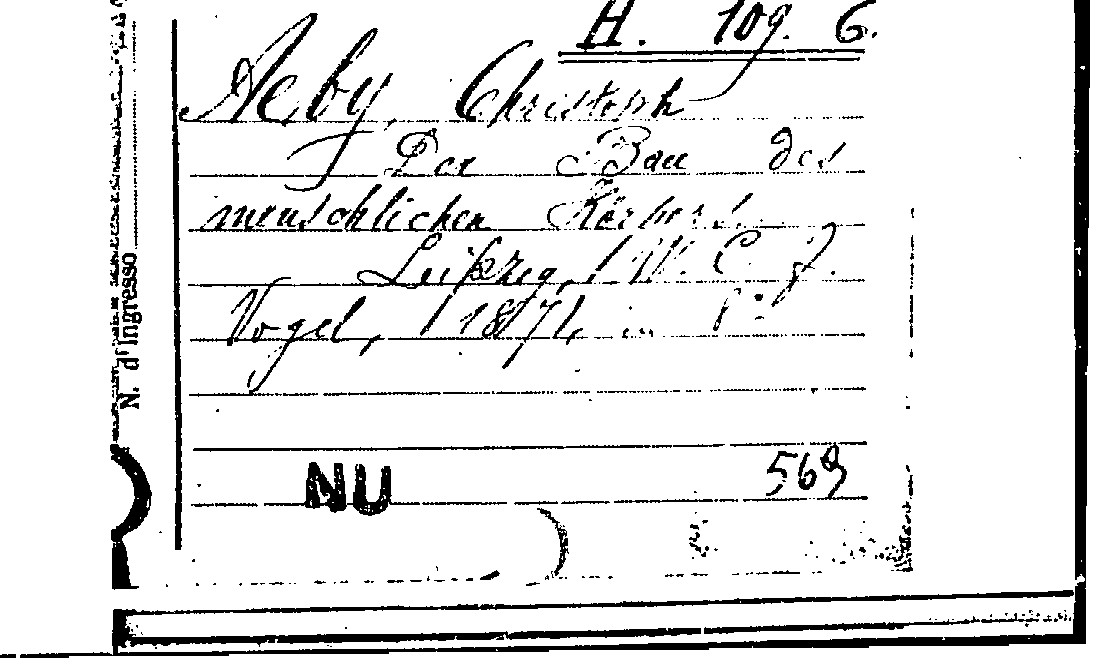 H. 109. 6.
Aeby, Christoph
Der Bau des
menschlichen Körpers.
Leipzig, F. C. W.
Vogel, 1871, in 8°
NU
569
N. d'Ingresso